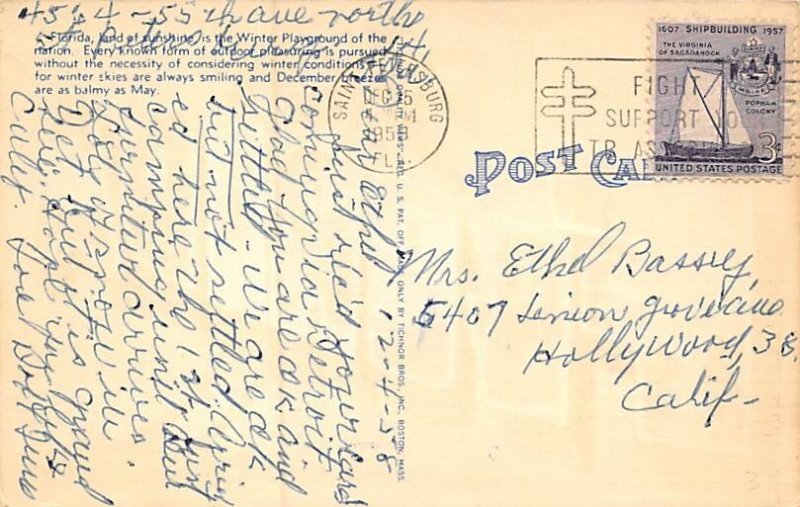 4514-55th ave north
Florida, land of sunshine, is the Winter Playground of the
nation. Every known form of outdoor pleasuring is pursued
without the necessity of considering winter conditions
for winter skies are always smiling and December breezes
are as balmy as May.
SAINT PETERSBURG
DEC 5
1958
FLA.
FIGHT
SUPPORT YO
TB ASS
1607 SHIPBUILDING 1957
THE VIRGINIA
OF SAGADAHOCK
POPHAM
COLONY
3¢
UNITED STATES POSTAGE
POST CA
REG. U. S. PAT. OFF. MADE ONLY BY TICHNOR BROS., INC., BOSTON, MASS.
12-4-58
Dear Ethel
Just rec'd your card
Coming via Detroit
Glad you are ok and
settled - we are ok
but not settled. Arriv
ed here the 1st just
camping until our
furniture arrives.
is now in
but it is grand
Hope you
Calif.
Mrs. Ethel Bassey,
5407 Lemon Grove Ave
Hollywood, 38,
Calif-